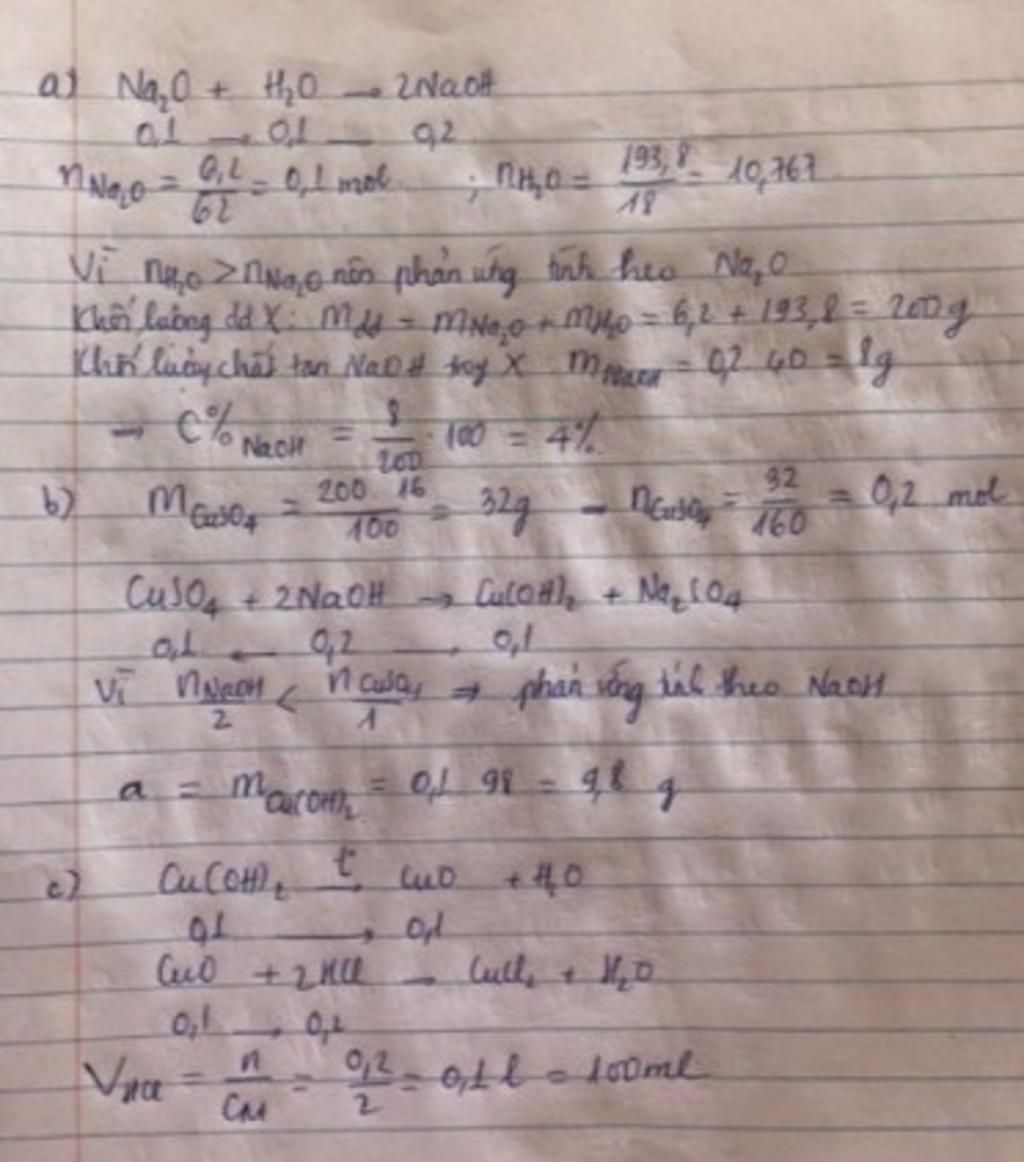 a) Na₂O + H₂O → 2NaOH
0,1 → 0,1 — 0,2
nNa₂O = 6,2/62 = 0,1 mol ; nH₂O = 193,8/18 = 10,767
Vì nH₂O > nNa₂O nên phản ứng tính theo Na₂O
Khối lượng dd X: mdd = mNa₂O + mH₂O = 6,2 + 193,8 = 200g
Khối lượng chất tan NaOH trong X mNaOH = 0,2 . 40 = 8g
→ C% NaOH = 8/200 . 100 = 4%
b) mCuSO₄ = 200 . 16/100 = 32g → nCuSO₄ = 32/160 = 0,2 mol
CuSO₄ + 2NaOH → Cu(OH)₂ + Na₂SO₄
0,1 ← 0,2 → 0,1
Vì nNaOH/2 < nCuSO₄/1 ⇒ phản ứng tính theo NaOH
a = mCu(OH)₂ = 0,1 . 98 = 9,8 g
c) Cu(OH)₂ t→ CuO + H₂O
0,1 → 0,1
CuO + 2HCl → CuCl₂ + H₂O
0,1 → 0,2
VHCl = n/CM = 0,2/2 = 0,1 l = 100ml